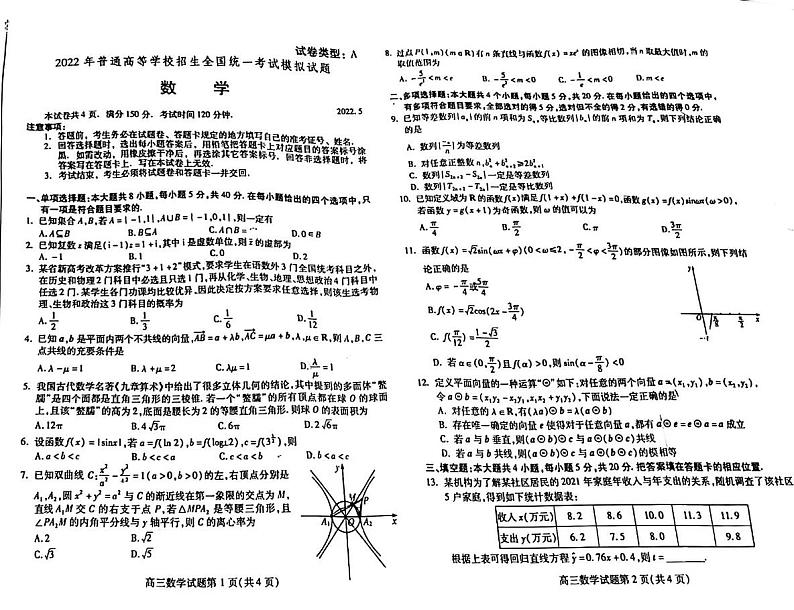 试卷类型：A
2022 年普通高等学校招生全国统一考试模拟试题
数 学
本试卷共4页. 满分150分. 考试时间120分钟.
2022.5
注意事项：
1. 答题前，考生务必在试题卷、答题卡规定的地方填写自己的准考证号、姓名.
2. 回答选择题时，选出每小题答案后，用铅笔把答题卡对应题目的答案标号涂
黑. 如需改动，用橡皮擦干净后，再选涂其它答案标号. 回答非选择题时，将
答案写在答题卡上. 写在本试卷上无效.
3. 考试结束，考生必须将试题卷和答题卡一并交回.
一、单项选择题：本大题共8小题，每小题5分，共40分. 在每小题给出的四个选项中，只
有一项是符合题目要求的.
1. 已知集合A,B,若A={-1,1},A∪B={-1,0,1},则一定有
A.A⊆B B.B⊆A C.A∩B= D.0∈B
2. 已知复数z满足(i-1)z=1+i,其中i是虚数单位,则z̄的虚部为
A. -1 B.1 C.0 D.2
3. 某省新高考改革方案推行“3+1+2”模式,要求学生在语数外3门全国统考科目之外,
在历史和物理2门科目中必选且只选1门,再从化学、生物、地理、思想政治4门科目中
任选2门. 某学生各门功课均比较优异,因此决定按方案要求任意选择,则该生选考物
理、生物和政治这3门科目的概率为
A.1/2 B.1/3 C.1/6 D.1/12
4. 已知a,b是平面内两个不共线的向量,AB=a+λb,AC=μa+b,λ,μ∈R,则A,B,C三
点共线的充要条件是
A.λ-μ=1 B.λ+μ=2 C.λμ=1 D.λ/μ=1
5. 我国古代数学名著《九章算术》中给出了很多立体几何的结论,其中提到的多面体“鳖
臑”是四个面都是直角三角形的三棱锥. 若一个“鳖臑”的所有顶点都在球O的球面
上,且该“鳖臑”的高为2,底面是腰长为2的等腰直角三角形. 则球O的表面积为
A.12π B.4√3π C.6π D.2√6π
6. 设函数f(x)=|sinx|,若a=f(ln2),b=f(log₂),c=f(3^(1/2)),则
A.a<b<c B.b<c<a C.c<a<b D.b<a<c
7. 已知双曲线C:x²/a²-y²/b²=1(a>0,b>0)的左、右顶点分别是
A₁,A₂,圆x²+y²=a²与C的渐近线在第一象限的交点为M,
直线A₁M交C的右支于点P,若△MPA₂是等腰三角形,且
∠PA₂M的内角平分线与y轴平行,则C的离心率为
A.2 B.√2
C.√3 D.√5
y
M
P
A₁
O
A₂
x
高三数学试题第1页(共4页)
8. 过点P(1,m)(m∈R)有n条直线与函数f(x)=xeˣ的图像相切,当n取最大值时,m的
取值范围为
A. -5/e²<m<e B. -5/e²<m<0 C. -1/e<m<0 D.m<e
二、多项选择题：本大题共4个小题,每小题5分,共20分. 在每小题给出的四个选项中,
有多项符合题目要求,全部选对的得5分,选对但不全的得2分,有选错的得0分.
9. 已知等差数列{aₙ}的前n项和为Sₙ,等比数列{bₙ}的前n项和为Tₙ,则下列结论正确
的是
A. 数列{Sₙ/n}为等差数列
B. 对任意正整数n,bₙ²+bₙ₊₂²≥2bₙ₊₁²
C. 数列{S₂ₙ₊₂-S₂ₙ}一定是等差数列
D. 数列{T₂ₙ₊₂-T₂ₙ}一定是等比数列
10. 已知定义域为R的函数f(x)满足f(1+x)+f(1-x)=0,函数g(x)=f(x)sinωx(ω>0),
若函数y=g(x+1)为奇函数,则ω的值可以为
A.π/4 B.π/2 C.π D.3π/2
11. 函数f(x)=√2sin(ωx+φ)(0<ω≤2,-π/2<φ<3π/2)的部分图像如图所示,则下列结
论正确的是
A.φ=-π/4或5π/4
B.f(x)=√2cos(2x-3π/4)
C. f(π/12)=(1-√3)/2
D. 若α∈(0,π/2)且f(α)>0,则sin(α-π/8)<0
y
O
π/8
π/2
x
-1
12. 定义平面向量的一种运算“⊙”如下:对任意的两个向量a=(x₁,y₁),b=(x₂,y₂),
令a⊙b=(x₁y₂-x₂y₁,x₁x₂+y₁y₂),下面说法一定正确的是
A. 对任意的λ∈R,有(λa)⊙b=λ(a⊙b)
B. 存在唯一确定的向量e使得对于任意向量a,都有a⊙e=e⊙a=a成立
C. 若a与b垂直,则(a⊙b)⊙c与a⊙(b⊙c)共线
D. 若a与b共线,则(a⊙b)⊙c与a⊙(b⊙c)的模相等
三、填空题：本大题共4小题,每小题5分,共20分. 把答案填在答题卡的相应位置.
13. 某机构为了解某社区居民的2021年家庭年收入与年支出的关系,随机调查了该社区
5户家庭,得到如下统计数据表:
收入x(万元) 8.2 8.6 10.0 11.3 11.9
支出y(万元) 6.2 7.5 8.0 9.8
根据上表可得回归直线方程ŷ=0.76x+0.4,则t=______.
高三数学试题第2页(共4页)